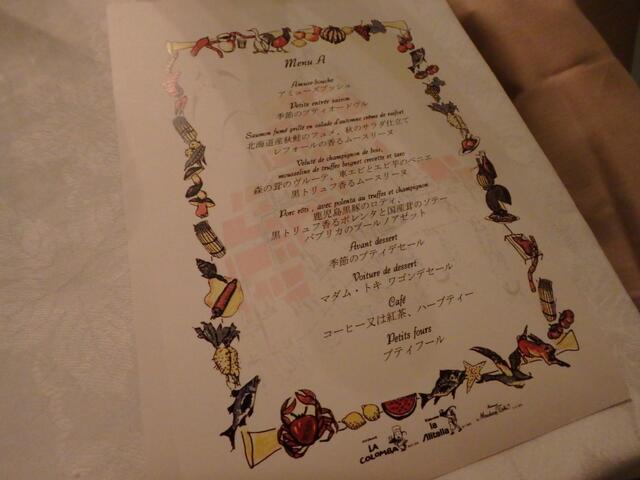 Menu A
Amuse-bouche
アミューズブッシュ
Petite entrée saison
季節のプティオードヴル
Saumon fumé grillé en salade d'automne crème de raifort
北海道産秋鮭のフュメ、秋のサラダ仕立て
レフォールの香るムースリーヌ
Velouté de champignon de bois,
mousseline de truffes beignet crevette et taro
森の茸のヴルーテ、車エビとエビ芋のベニエ
黒トリュフ香るムースリーヌ
Porc rôti, avec polenta au truffes et champignon
鹿児島黒豚のロティ、
黒トリュフ香るポレンタと国産茸のソテー
パプリカのブールノアゼット
Avant dessert
季節のプティデセール
Voiture de dessert
マダム・トキ ワゴンデセール
Café
コーヒー又は紅茶、ハーブティー
Petits fours
プティフール
LA COLOMBA
la Alitalia